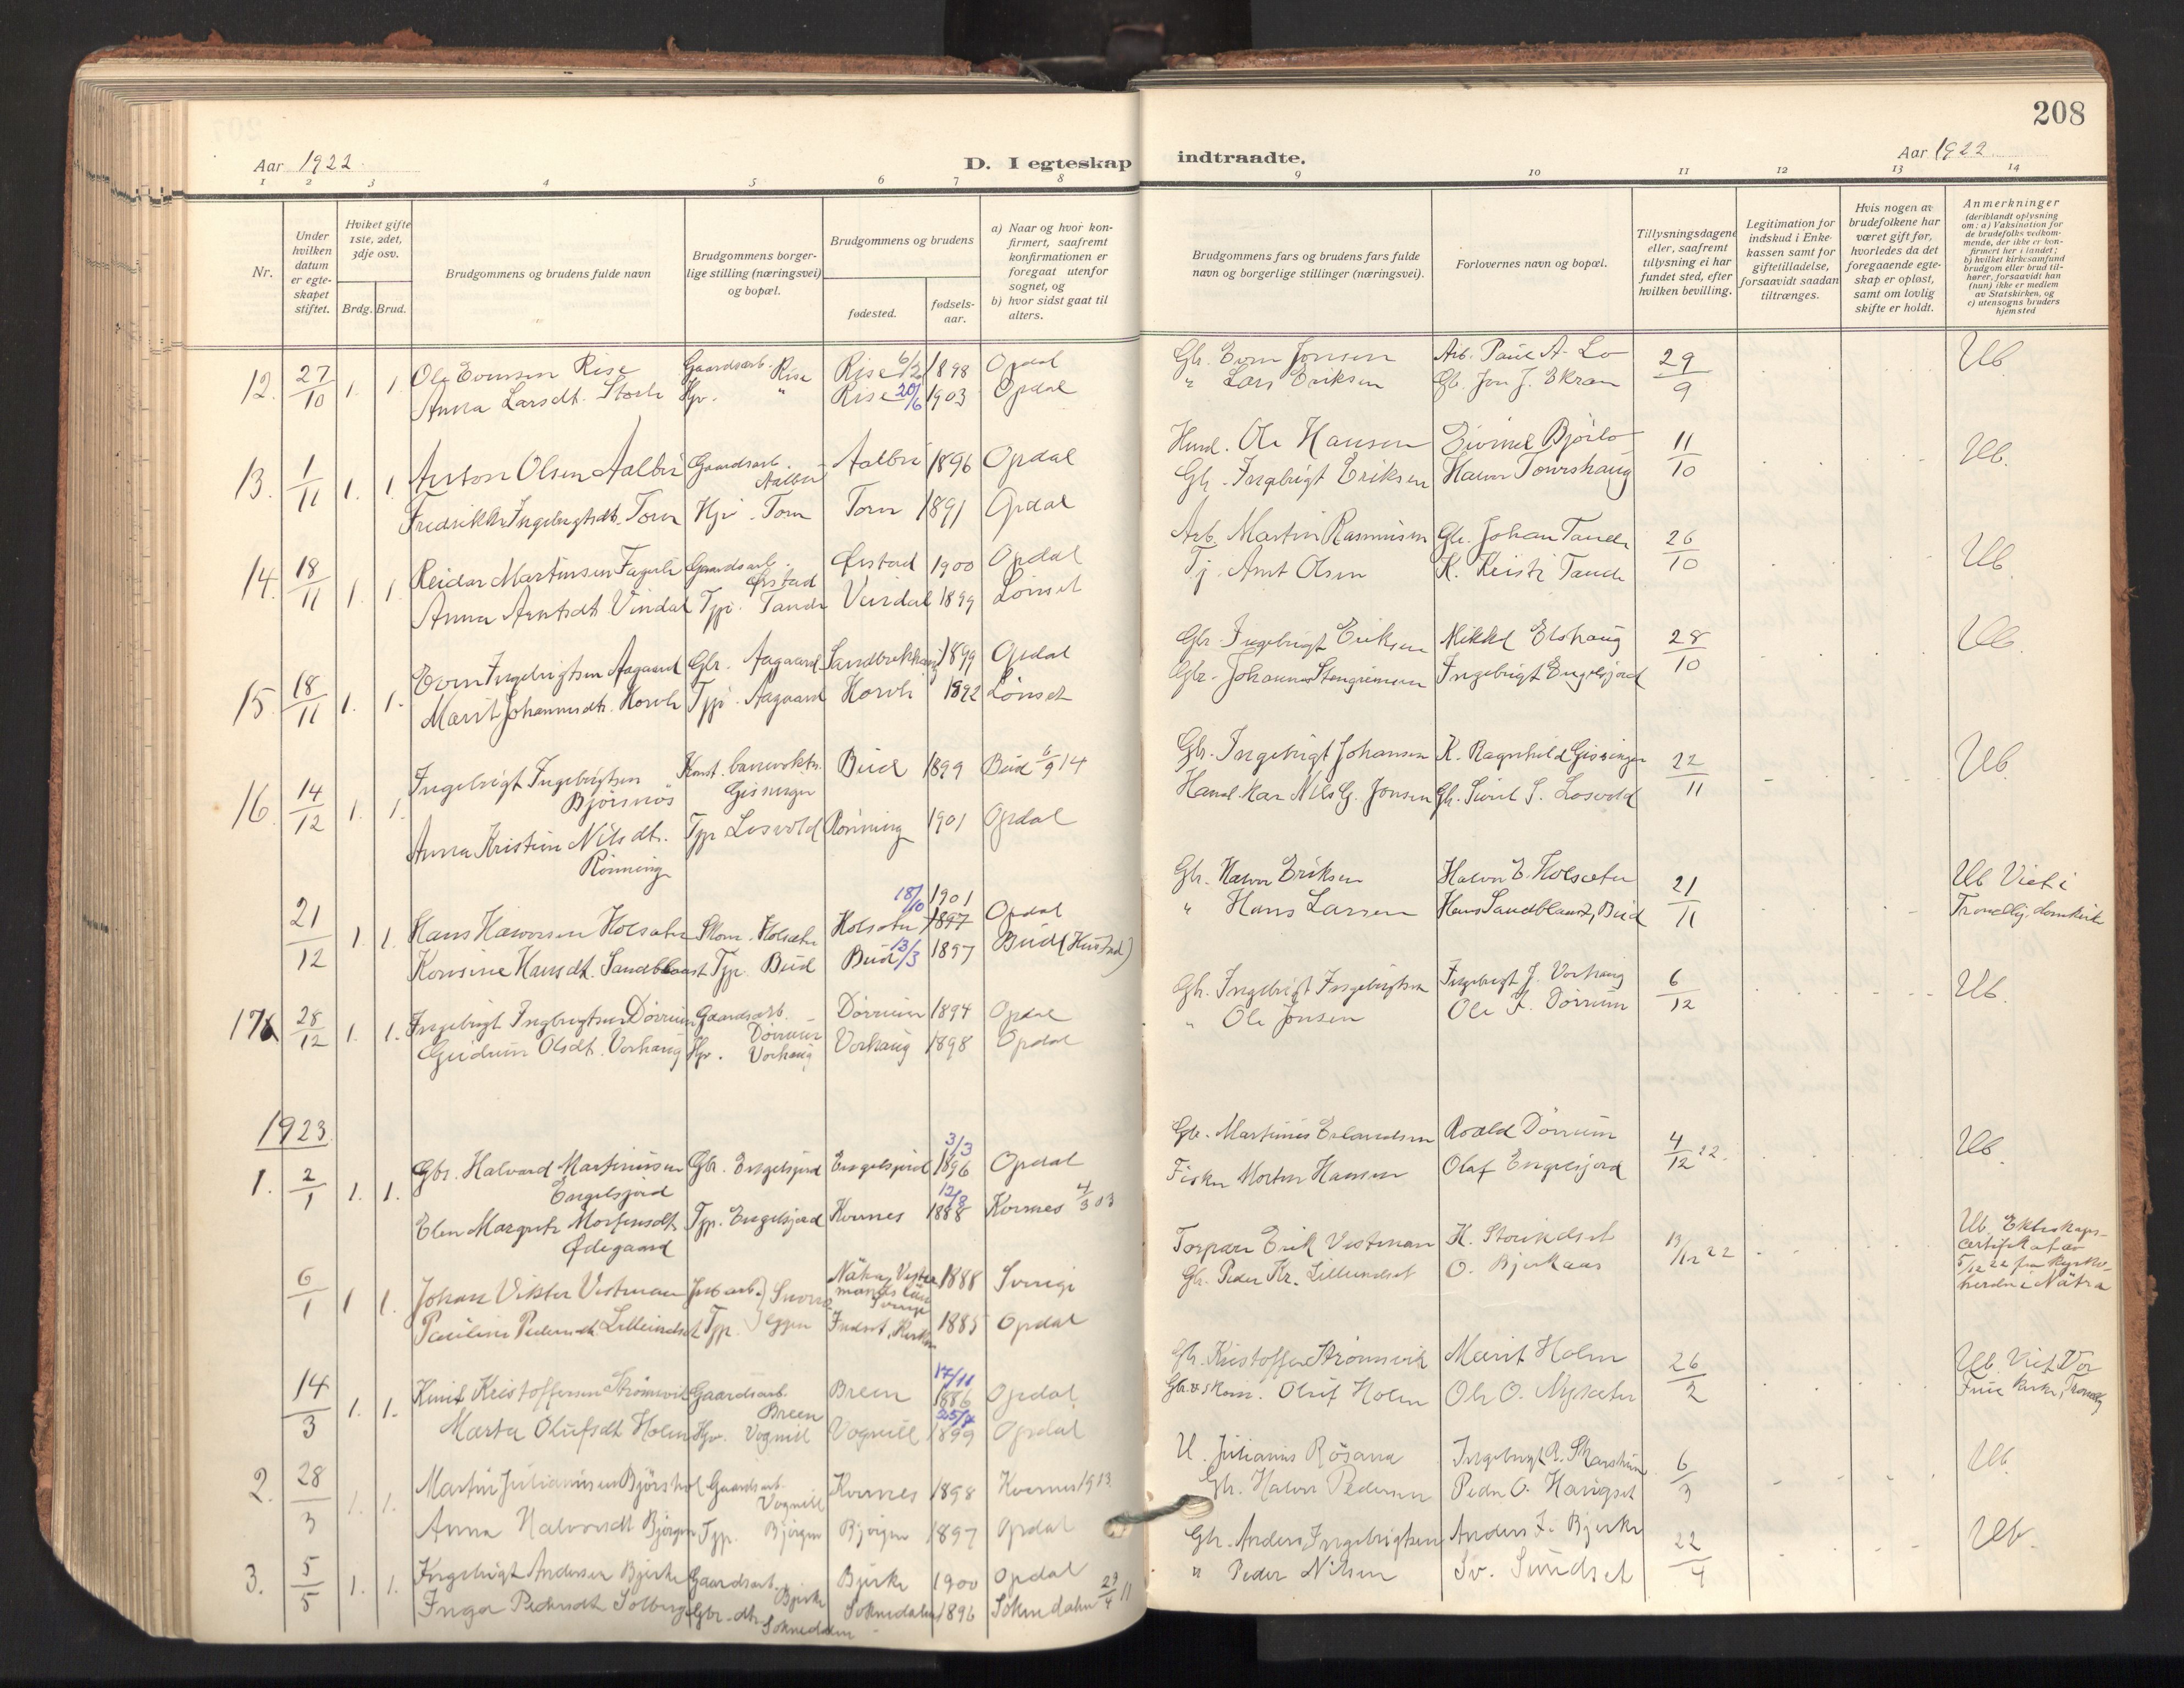 208
Aar 1922
D. I egteskap indtraadte.
Aar 1922
1 2 3 4 5 6 7 8 9 10 11 12 13 14
Nr.
Under hvilken datum er egte-skapet stiftet.
Hviket gifte 1ste, 2det, 3dje osv.
Brdg. Brud.
Brudgommens og brudens fulde navn
Brudgommens borger-lige stilling (næringsvei) og bopæl.
Brudgommens og brudens
fødested.
fødsels-aar.
a) Naar og hvor kon-firmert, saafremt konfirmationen er foregaat utenfor sognet, og
b) hvor sidst gaat til alters.
Brudgommens fars og brudens fars fulde navn og borgerlige stillinger (næringsvei).
Forlovernes navn og bopæl.
Tillysningsdagene eller, saafremt tillysning ei har fundet sted, efter hvilken bevilling.
Legitimation for indskud i Enke-kassen samt for giftetilladelse, forsaavidt saadan tiltrænges.
Hvis nogen av brudefolkene har været gift før, hvorledes da det foregaaende egte-skap er opløst, samt om lovlig skifte er holdt.
Anmerkninger
(deriblandt oplysning om: a) Vaksination for de brudefolks vedkom-mende, der ikke er kon-firmert her i landet; b) hvilket kirkesamfund brudgom eller brud til-hører, forsaavidt han (hun) ikke er medlem av Statskirken, og c) utensogns bruders hjemsted
12. 27/10 1. 1. Ole Evensen Rise Gaardsarb. Rise Rise 6/12 1898 Opdal Gbr. Even Jonsen Arb. Paul A. Lo 29/9 Ub.
Anna Larsdt. Storli Hjv. " Rise 20/6 1903 Opdal " Lars Eriksen Gb. Jon J. Ekran
13. 1/11 1. 1. Anton Olsen Aalbu Gaardsarb. Aalbu Aalbu 1896 Opdal Husd. Ole Hansen Eivind Bjørlo 11/10 Ub.
Fredrikke Ingebrigtsdt. Torve Hjv. Torve Torve 1891 Opdal Gbr. Ingebrigt Eriksen Halvor Tourshaug
14. 18/11 1. 1. Reidar Martinsen Fagerli Gaardsarb. Ørstad Ørstad 1900 Opdal Arb. Martin Rasmussen Gbr. Johan Tande 26/10 Ub.
Anna Arntsdt. Vindal Tjp. Tande Vindal 1899 Lønset Tj. Arnt Olsen K. Kristi Tande
15. 18/11 1. 1. Even Ingebrigtsen Aagaard Gbr. Aagaard Sandbrekkhaug 1899 Opdal Gbr. Ingebrigt Eriksen Mikkel Elshaug 28/10 Ub.
Marit Johannesdt. Horvli Tjp. Aagaard Horvli 1892 Lønset Gbr. Johannes Stengrimsen Ingebrigt Engelsjord
16. 14/12 1. 1. Ingebrigt Ingebrigtsen Bjørsnøs Konst. banevokter Gisinger Bud 1899 Bud 6/9 14 Gbr. Ingebrigt Johansen K. Ragnhild Gisinger 22/11 Ub.
Anna Kristine Nilsdt. Rønning Tjp. Losvold Rønning 1901 Opdal Handl. Nils G. Jonsen Gb. Sivert S. Losvold
21/12 1. 1. Hans Halvorsen Holsæter Skom. Holsæter Holsæter 18/10 1901 1897 Opdal Gbr. Halvor Eriksen Halvor E. Holsæter 21/11 Ub Viet i Trondhj. domkirke
Konsine Hansdt. Sandblaast Tjp. Bud Bud 13/3 1897 Bud (Hustad) " Hans Larsen Hans Sandblaast, Bud
17. 28/12 1. 1. Ingebrigt Ingebrigtsen Dørrum Gaardsarb. Dørrum Dørrum 1894 Opdal Gb. Ingebrigt Ingebrigtsen Ingebrigt J. Vorhaug 6/12 Ub.
Gudrun Olsdt. Vorhaug Hjv. Vorhaug Vorhaug 1898 Opdal " Ole Jonsen Ole I. Dørrum
1923
1. 2/1 1. 1. Gbr. Halvard Martinusen Engelsjord Gbr. Engelsjord Engelsjord 3/3 1896 Opdal Gbr. Martinus Erlandsen Roald Dørrum 4/12 22. Ub.
Elen Margrete Mortensdt. Ødegaard Tjp. Engelsjord Kvernes 12/8 1888 Kvernes 4/3 03 Fisker Morten Hansen Olaf Engelsjord
6/1 1 1. Johan Viktor Vestman Jrbarb. Nätra, Vester Sverige 1888 Sverige Torpare Erik Vestman H. Storindset 13/12 22 Ub. Ekteskapscertifikat av 5/12 22 fra kyrkoherden i Nätra
Pauline Pedersdt. Lilleindset Tjp. Indset 1885 Opdal Gb. Peder Kr. Lilleindset O. Bjerkaas
14/3 1. 1. Knut Kristoffersen Strømsvik Gaardsarb. Breen Breen 17/11 1886 Opdal Gb. Kristoffer Strømsvik Marit Holm 26/2 Ub. Viet Vor Frue kirke, Trondhj
Marta Olufsdt. Holm Hjv. Vognill Vognill 25/7 1899 Opdal Gbr. & skom. Oluf Holm Ole O. Nysæter
2. 28/3 1. 1. Martin Julianusen Bjørshol Gaardsarb. Vognill Kvernes 1898 Kvernes 1913 U. Julianus Røsand Ingebrigt R. Skarsheim 6/3 Ub.
Anna Halvorsdt. Bjørgen Tjp. Bjørgen Bjørgen 1897 Opdal Gb. Halvor Pedersen Peder O. Haugset
3. 5/5 1. 1. Ingebrigt Andersen Bjerke Gaardsarb. Bjerke Bjerke 1900 Opdal Gb. Anders Ingebrigtsen Anders I. Bjerke 22/4 Ub.
Inga Pedersdt. Solberg Gbr. dtr. Soknedalen Soknedalen 1896 Soknedalen 29/4 11 " Peder Nilsen Sv. Sundset